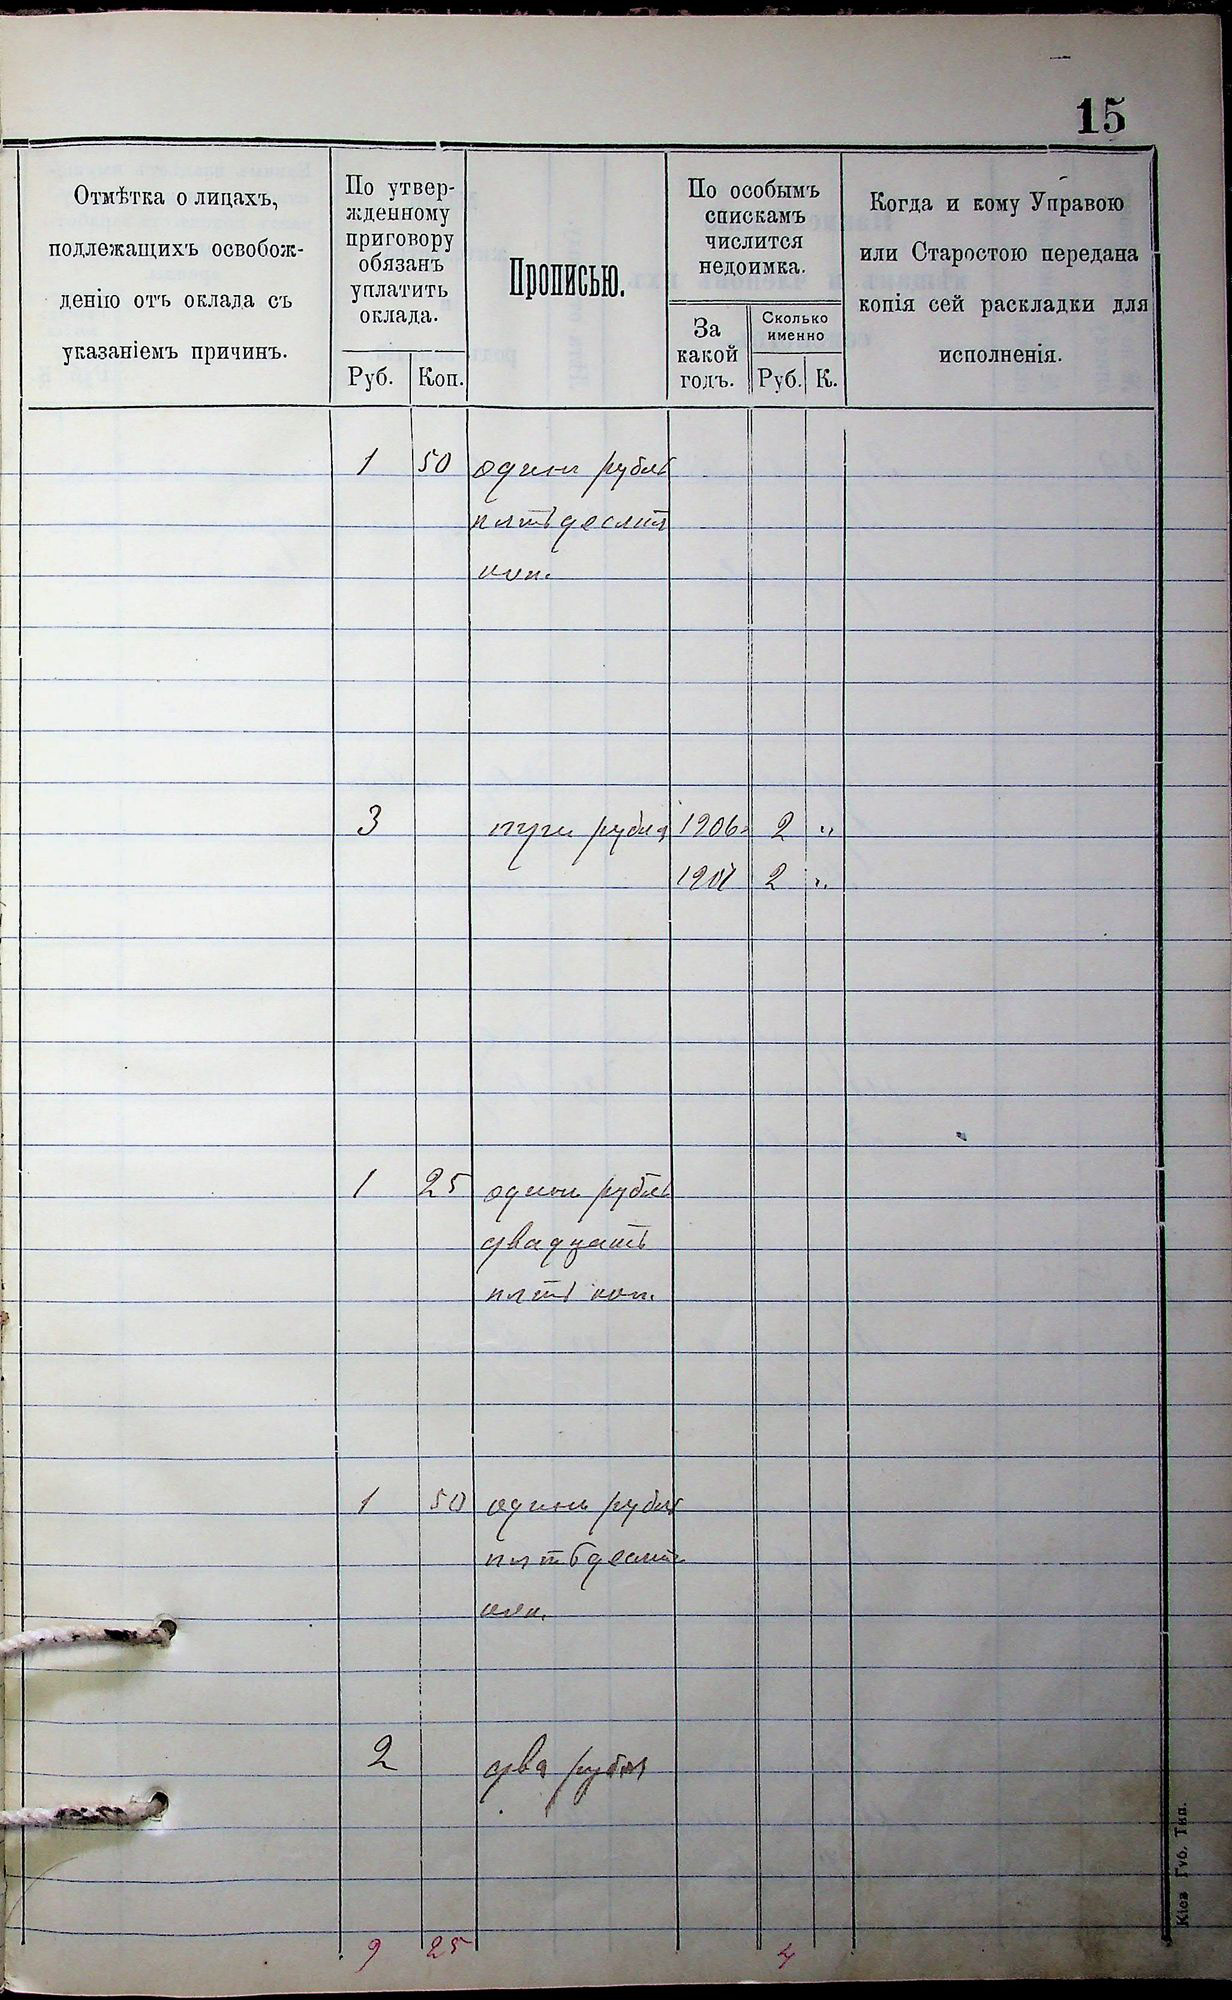 15
Отмѣтка о лицахъ,
подлежащихъ освобож-
денію отъ оклада съ
указаніемъ причинъ.
По утвер-
жденному
приговору
обязанъ
уплатить
оклада.
Руб. Коп.
Прописью.
По особымъ
спискамъ
числится
недоимка.
За
какой
годъ.
Сколько
именно
Руб. К.
Когда и кому Управою
или Старостою передана
копія сей раскладки для
исполненія.
1 50 одинъ рубль
пятьдесятъ
коп.
3 три рубля 1906 г 2 "
1907 2 "
1 25 одинъ рубль
двадцать
пять коп.
1 50 одинъ рубль
пятьдесят
коп.
2 два рубля
9 25 4
Кіев Губ. Тип.